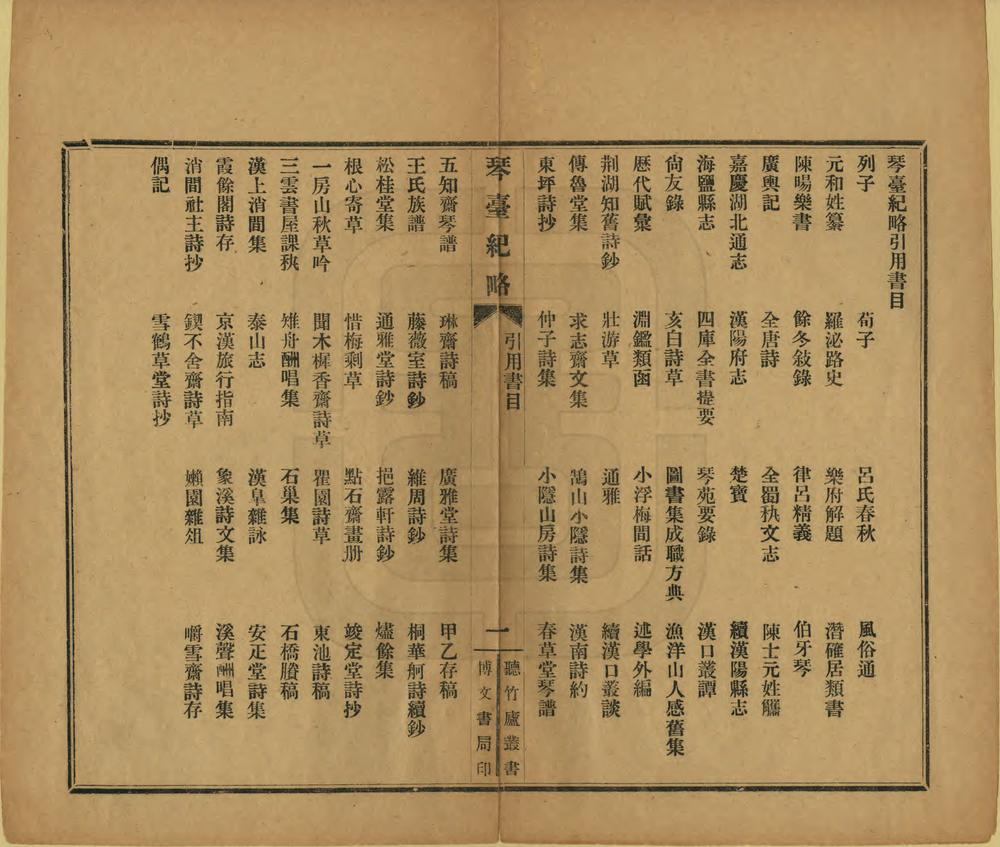 琴臺紀略引用書目
列子 荀子 呂氏春秋 風俗通
元和姓纂 羅泌路史 樂府解題 潛確居類書
陳暘樂書 餘冬敍錄 律呂精義 伯牙琴
廣輿記 全唐詩 全蜀秇文志 陳士元姓觿
嘉慶湖北通志 漢陽府志 楚寶 續漢陽縣志
海鹽縣志 四庫全書提要 琴苑要錄 漢口叢譚
尙友錄 亥白詩草 圖書集成職方典 漁洋山人感舊集
歷代賦彙 淵鑑類函 小浮梅閒話 述學外編
荆湖知舊詩鈔 壯游草 通雅 續漢口叢談
傳魯堂集 求志齋文集 鵠山小隱詩集 漢南詩約
東坪詩抄 仲子詩集 小隱山房詩集 春草堂琴譜
琴臺紀略 引用書目 一 聽竹廬叢書 博文書局印
五知齋琴譜 琳齋詩稿 廣雅堂詩集 甲乙存稿
王氏族譜 藤薇室詩鈔 維周詩鈔 桐華舸詩續鈔
松桂堂集 通雅堂詩鈔 挹露軒詩鈔 燼餘集
根心寄草 惜梅剩草 點石齋畫册 竣定堂詩抄
一房山秋草吟 聞木樨香齋詩草 瞿園詩草 東池詩稿
三雲書屋課秇 雉舟酬唱集 石巢集 石橋賸稿
漢上消閒集 泰山志 漢皐雜詠 安正堂詩集
霞餘閣詩存 京漢旅行指南 象溪詩文集 溪聲酬唱集
消閒社主詩抄 鍥不舍齋詩草 嬾園雜俎 嚼雪齋詩存
偶記 雪鶴草堂詩抄